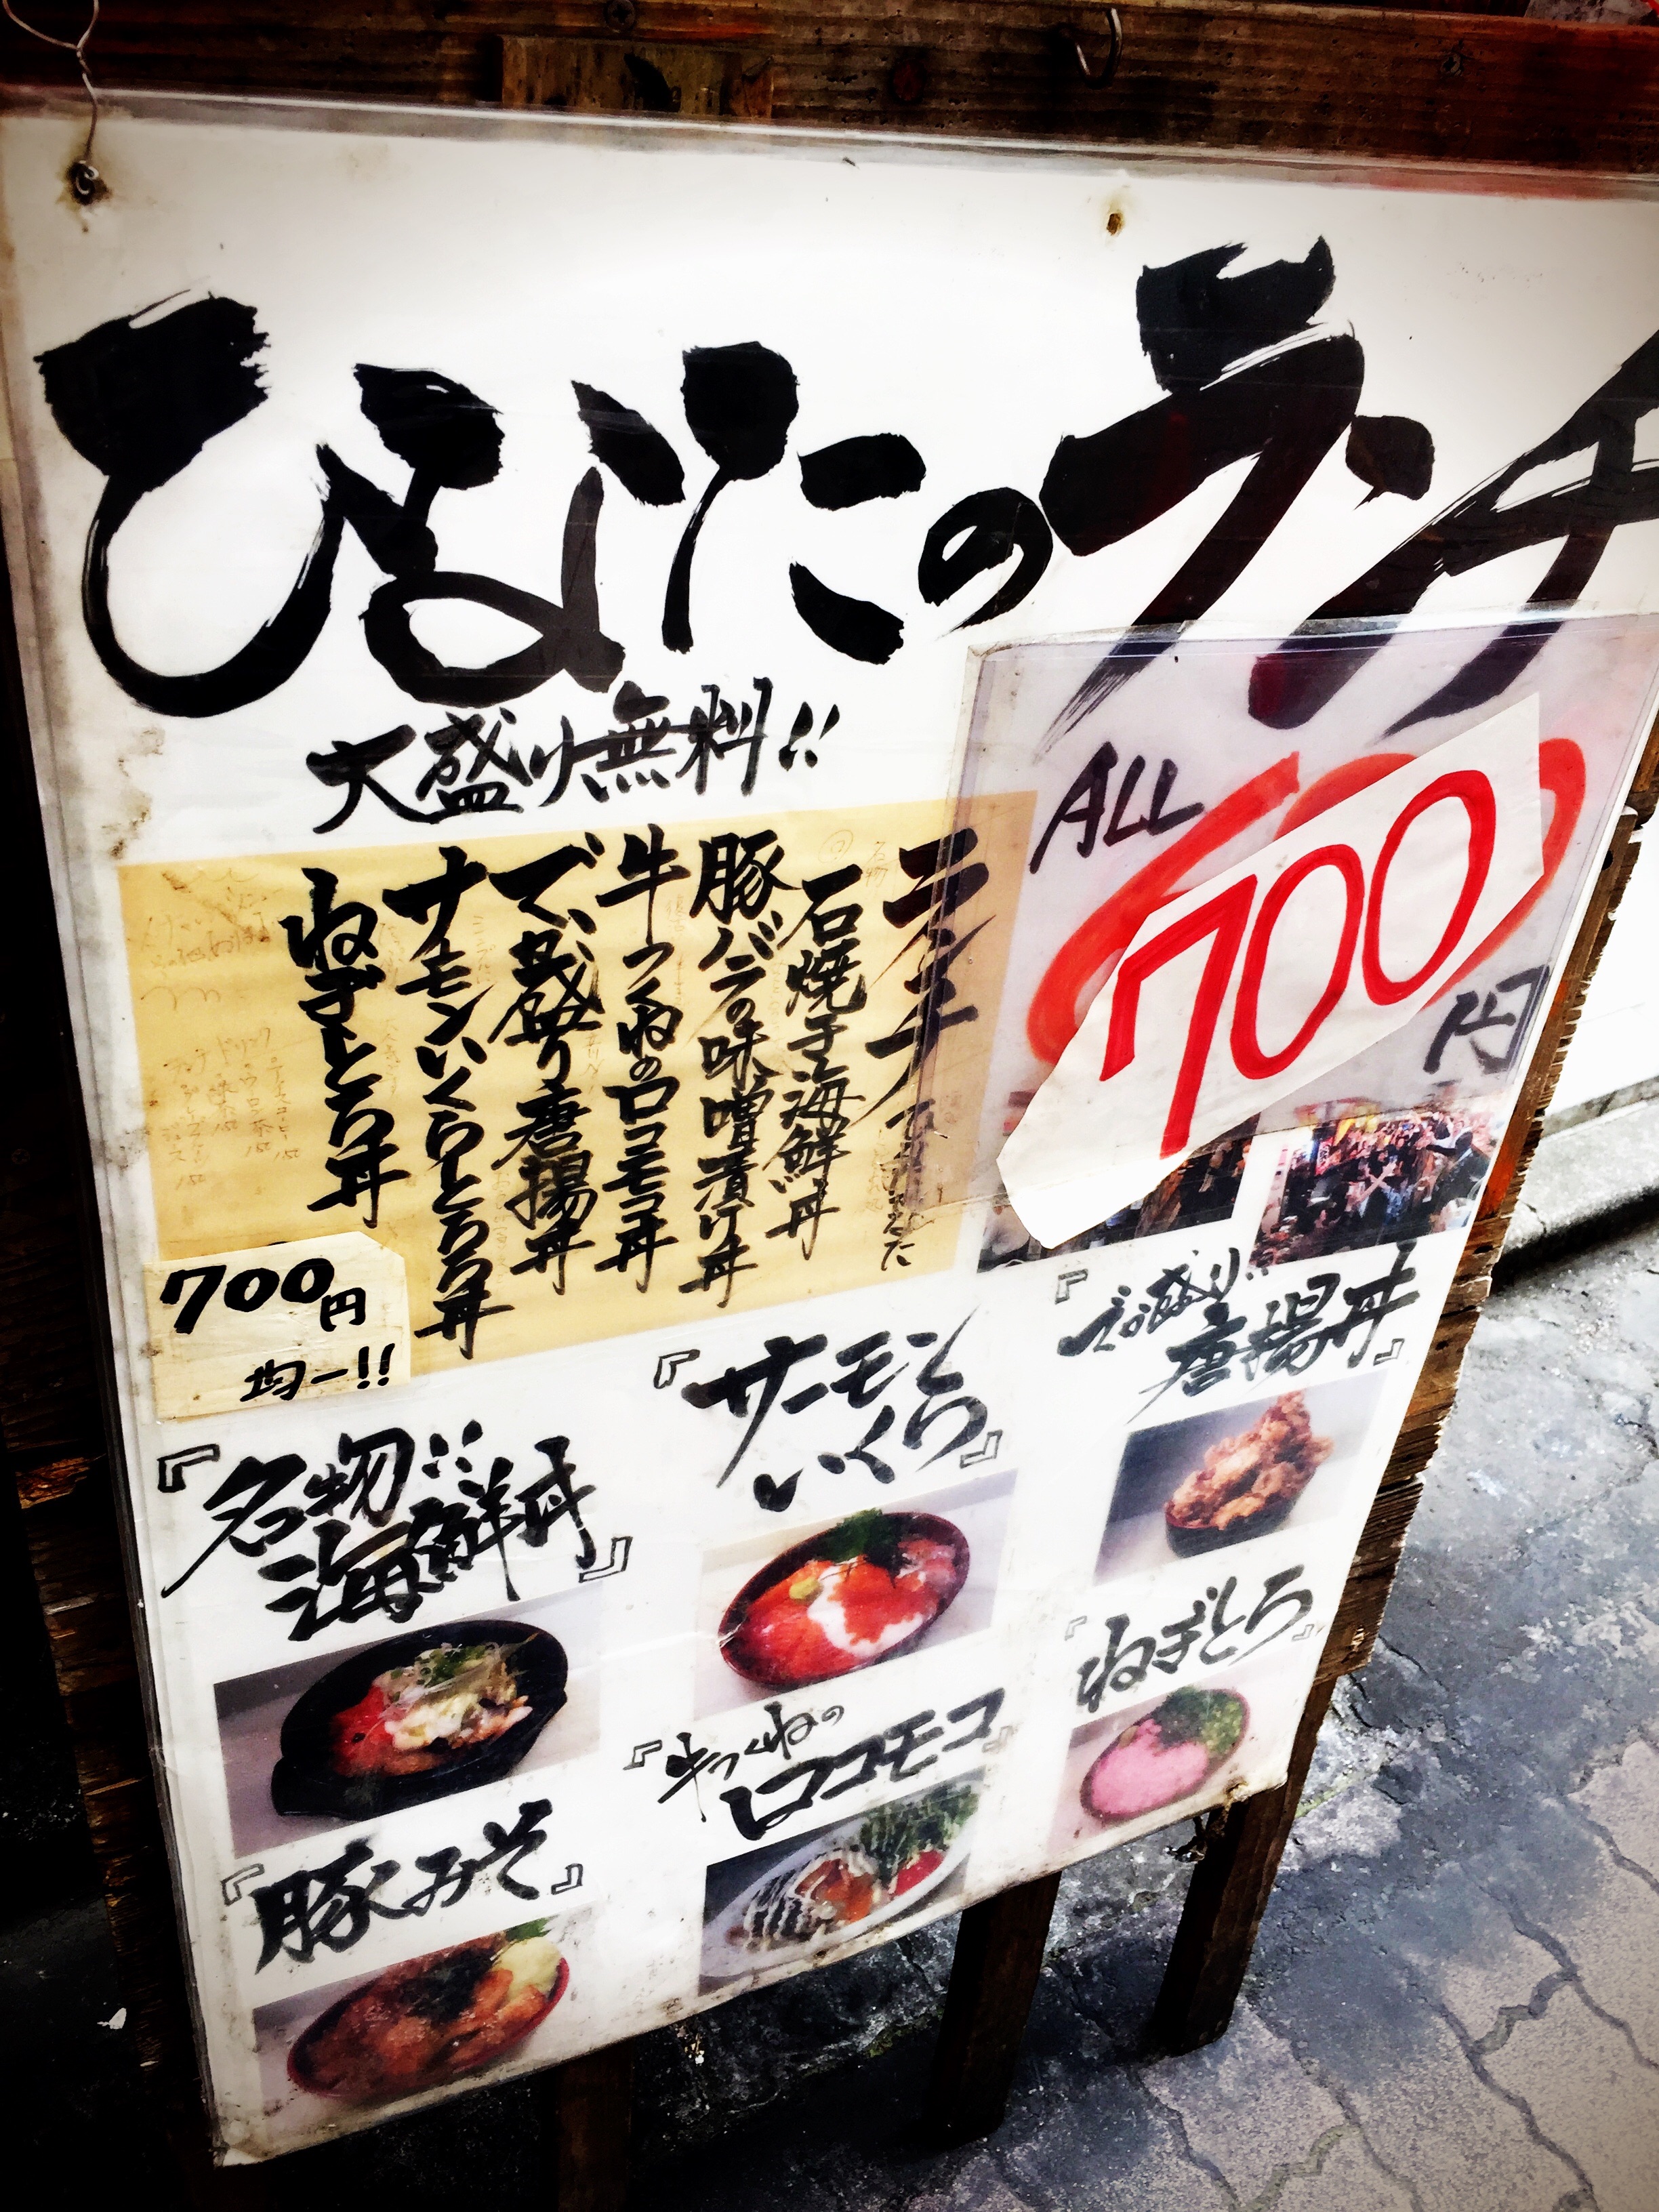 ひなたのランチ
大盛り無料!!
ALL
700
円
石焼き海鮮丼
豚バラの味噌漬け丼
牛つくねのロコモコ丼
で、盛り唐揚丼
サーモンいくらとろろ丼
ねぎとろ丼
700円
均一!!
『名物!!
海鮮丼』
『サーモン
いくら』
唐揚丼』
『豚みそ』
『牛つくねの
ロコモコ』
『ねぎとろ』